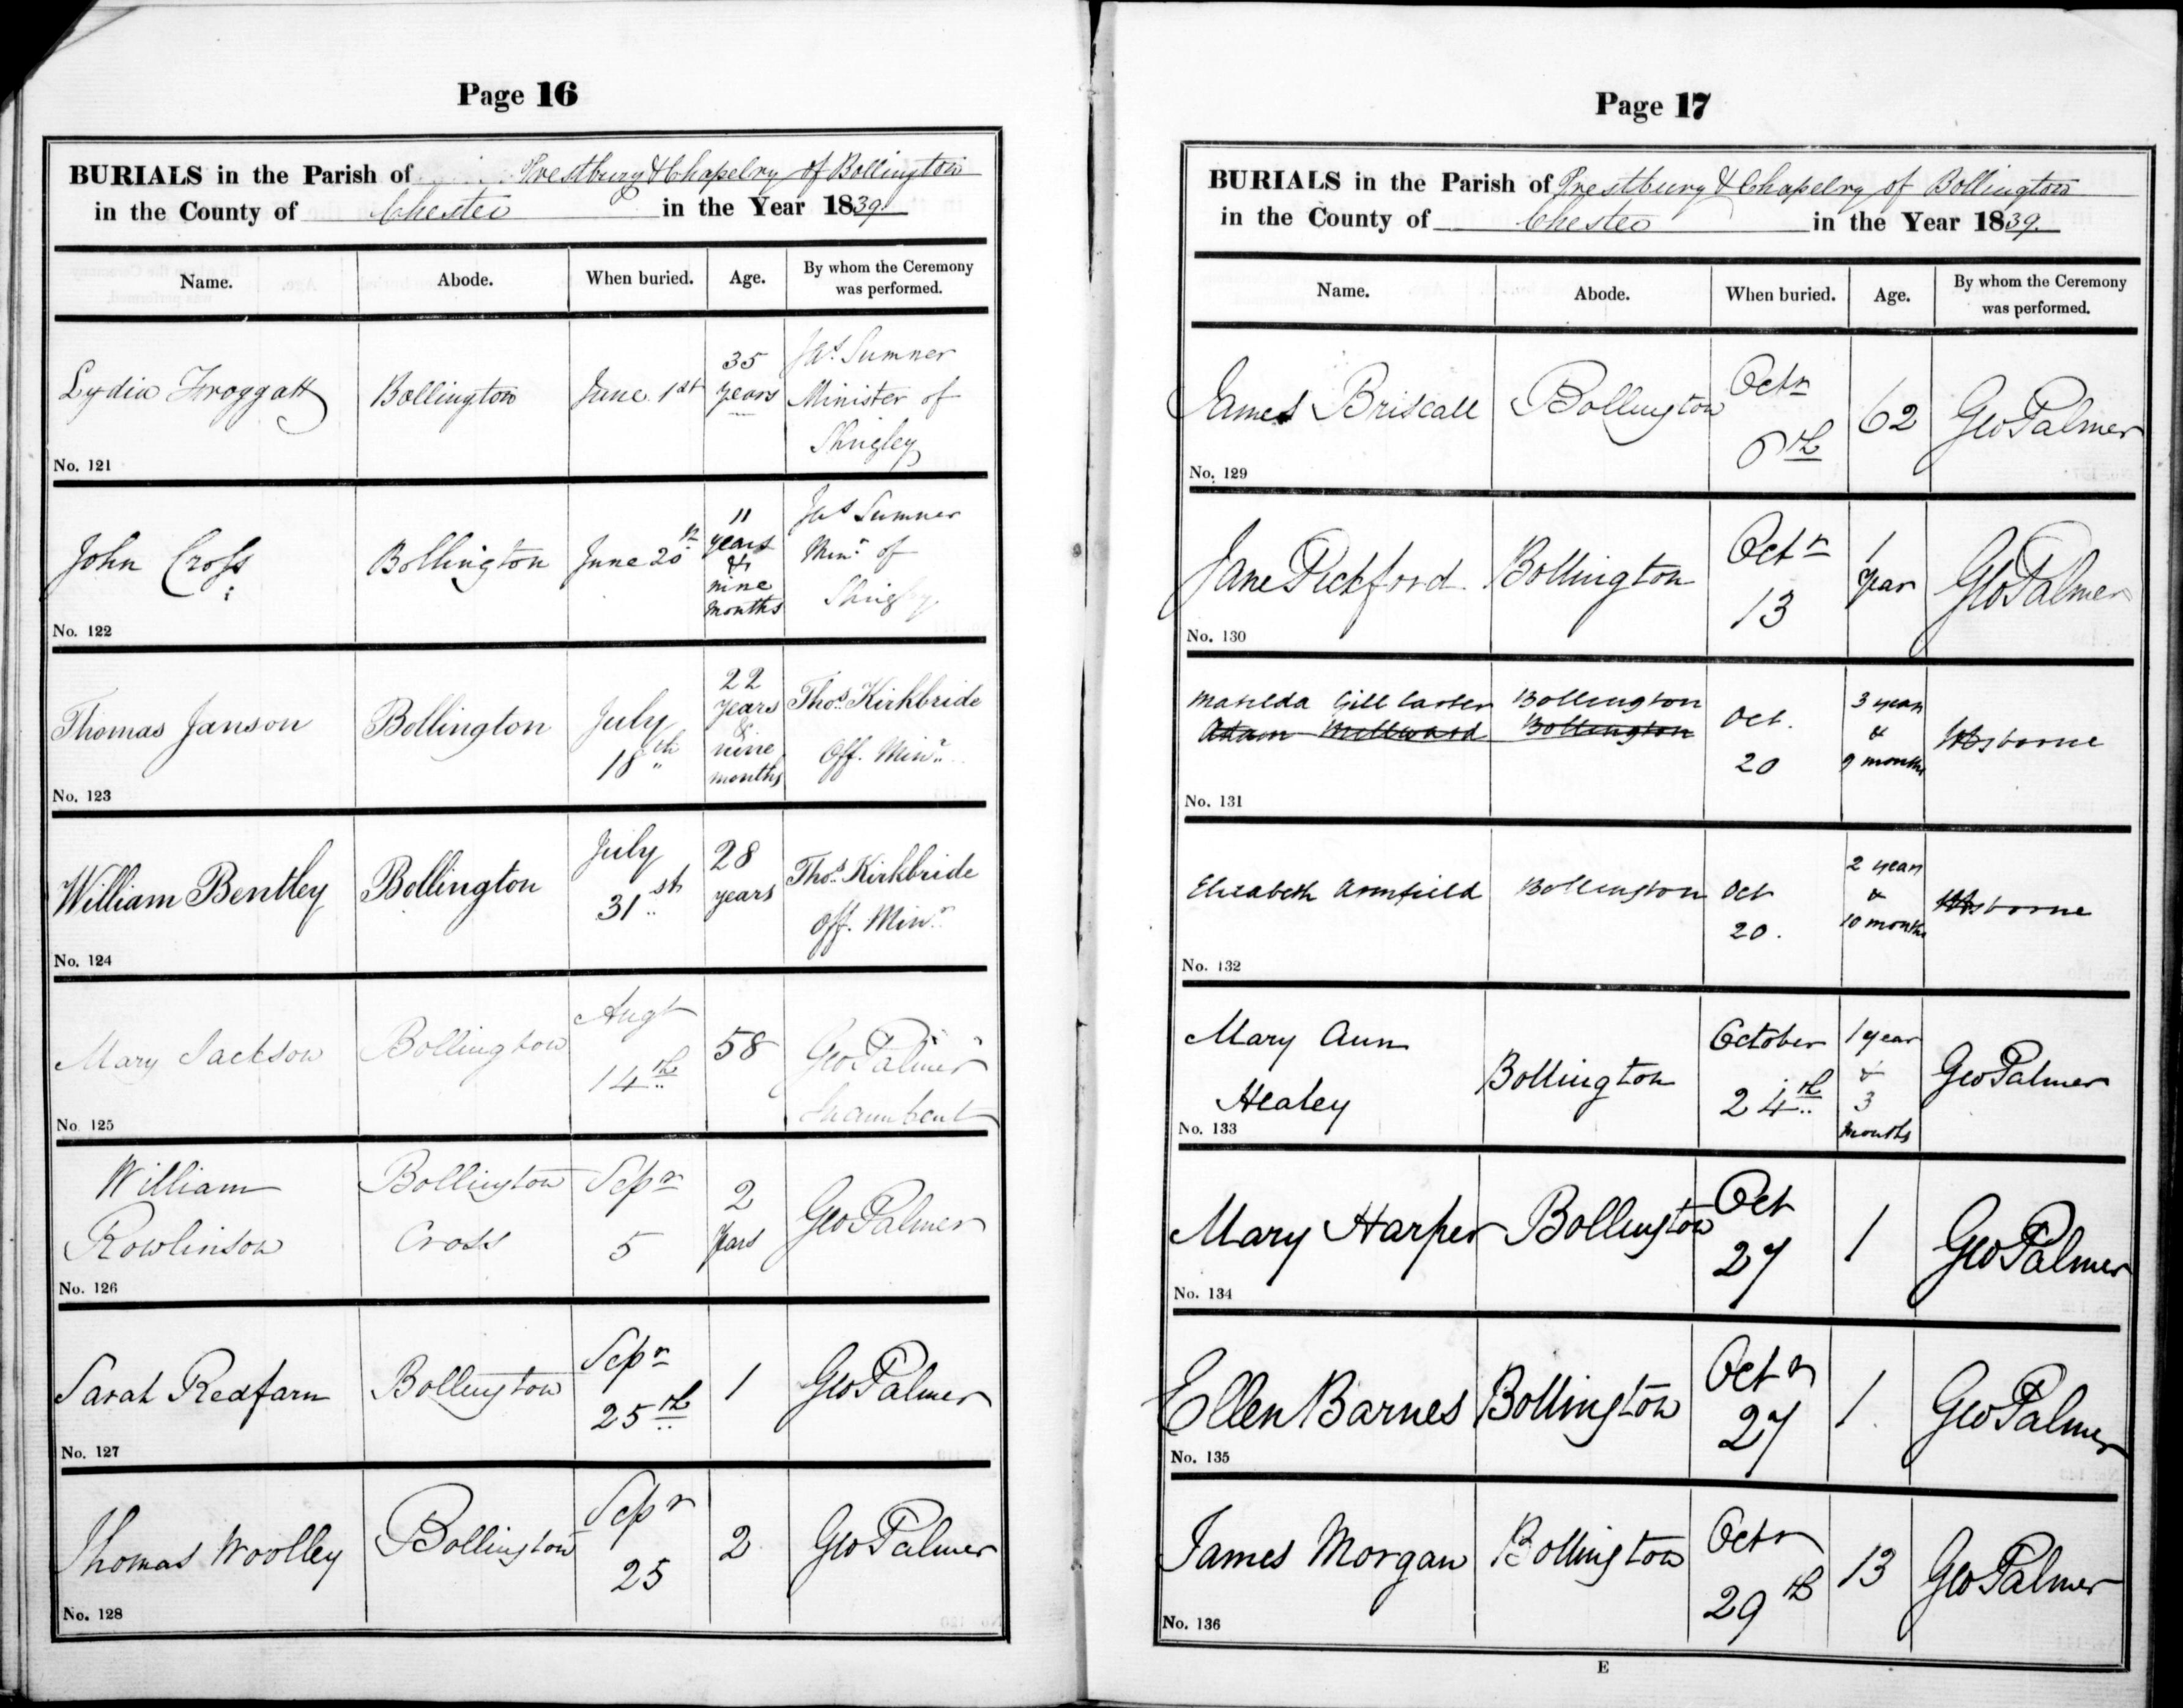 Page 16
BURIALS in the Parish of Prestbury & Chapelry of Bollington
in the County of Chester in the Year 1839.
Name. Abode. When buried. Age. By whom the Ceremony was performed.
Lydia Froggatt Bollington June 1st 35 years Jas. Sumner Minister of Shrigley
No. 121
John Cross Bollington June 20th 11 years & nine months Jas Sumner Minr. of Shrigley
No. 122
Thomas Janson Bollington July 18th 22 years & nine months Thos. Kirkbride Off. Minr.
No. 123
William Bentley Bollington July 31st 28 years Thos. Kirkbride Off. Minr.
No. 124
Mary Jackson Bollington Augt 14th 58 Geo Palmer Incumbent
No. 125
William Rowlinson Bollington Cross Sepr 5 2 Years Geo Palmer
No. 126
Sarah Redfarn Bollington Sepr 25th 1 Geo Palmer
No. 127
Thomas Woolley Bollington Sepr 25 2 Geo Palmer
No. 128
Page 17
BURIALS in the Parish of Prestbury & Chapelry of Bollington
in the County of Chester in the Year 1839.
Name. Abode. When buried. Age. By whom the Ceremony was performed.
James Briscall Bollington Octr 6th 62 Geo Palmer
No. 129
Jane Pickford Bollington Octr 13 1 year Geo Palmer
No. 130
Matilda Gill Carter Bollington
Adam Millward Bollington Oct. 20 3 years & 9 months Osborne
No. 131
Elizabeth Armfield Bollington Oct 20. 2 years & 10 months Osborne
No. 132
Mary Ann Healey Bollington October 24th 1 year & 3 months Geo Palmer
No. 133
Mary Harper Bollington Oct 27 1 Geo Palmer
No. 134
Ellen Barnes Bollington Octr 27 1 Geo Palmer
No. 135
James Morgan Bollington Octr 29th 13 Geo Palmer
No. 136
E